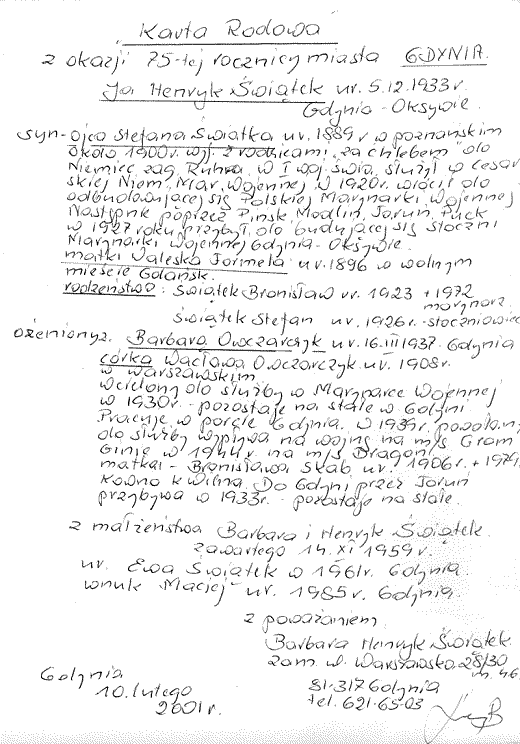 Karta Rodowa
z okazji 75-tej rocznicy miasta GDYNIA.
Ja Henryk Świątek ur. 5.12.1933r.
Gdynia - Oksywie.
syn - ojca Stefana Świątka ur. 1889r w poznańskim
około 1900r. wyj. z rodzicami "za chlebem" do
Niemiec zag. Ruhra. W I woj. świa. służył w Cesar
skiej Niem. Mar. Wojennej w 1920r. wrócił do
odbudowującej się Polskiej Marynarki Wojennej
Następnie poprzez Pińsk, Modlin, Toruń, Puck
w 1927 roku przybył do budującej się stoczni
Marynarki Wojennej Gdynia - Oksywie.
matki Valeska Formela ur. 1896 w wolnym
mieście Gdańsk.
rodzeństwo: Świątek Bronisław ur. 1923 + 1972
marynarz.
Świątek Stefan ur. 1926r. - stoczniowiec
ożeniony z. Barbara Owczarczyk ur. 16.III 1937. Gdynia
córka Wacława Owczarczyk ur. 1908r.
w Warszawskim
wcielony do służby w Marynarce Wojennej
w 1930r. - pozostaje na stałe w Gdyni
Pracuje w porcie Gdynia. w 1939r. powołany
do służby wypływa na wojnę na m/s Grom
Ginie w 1944r. na m/s Dragon.
matka - Bronisława Skab. ur. 1906r. + 1979r.
Kowno k Wilna. Do Gdyni przez Toruń
przybywa w 1933r. - pozostaje na stałe.
z małżeństwa Barbara i Henryk Świątek.
zawartego 14.XI 1959r.
ur. Ewa Świątek w 1961r. Gdynia
wnuk Maciej - ur. 1985r. Gdynia.
z poważaniem
Barbara Henryk Świątek.
zam. ul. Warszawska 28/30
m. 46
81-317 Gdynia
tel. 621-65-03
Gdynia
10. lutego
2001r.